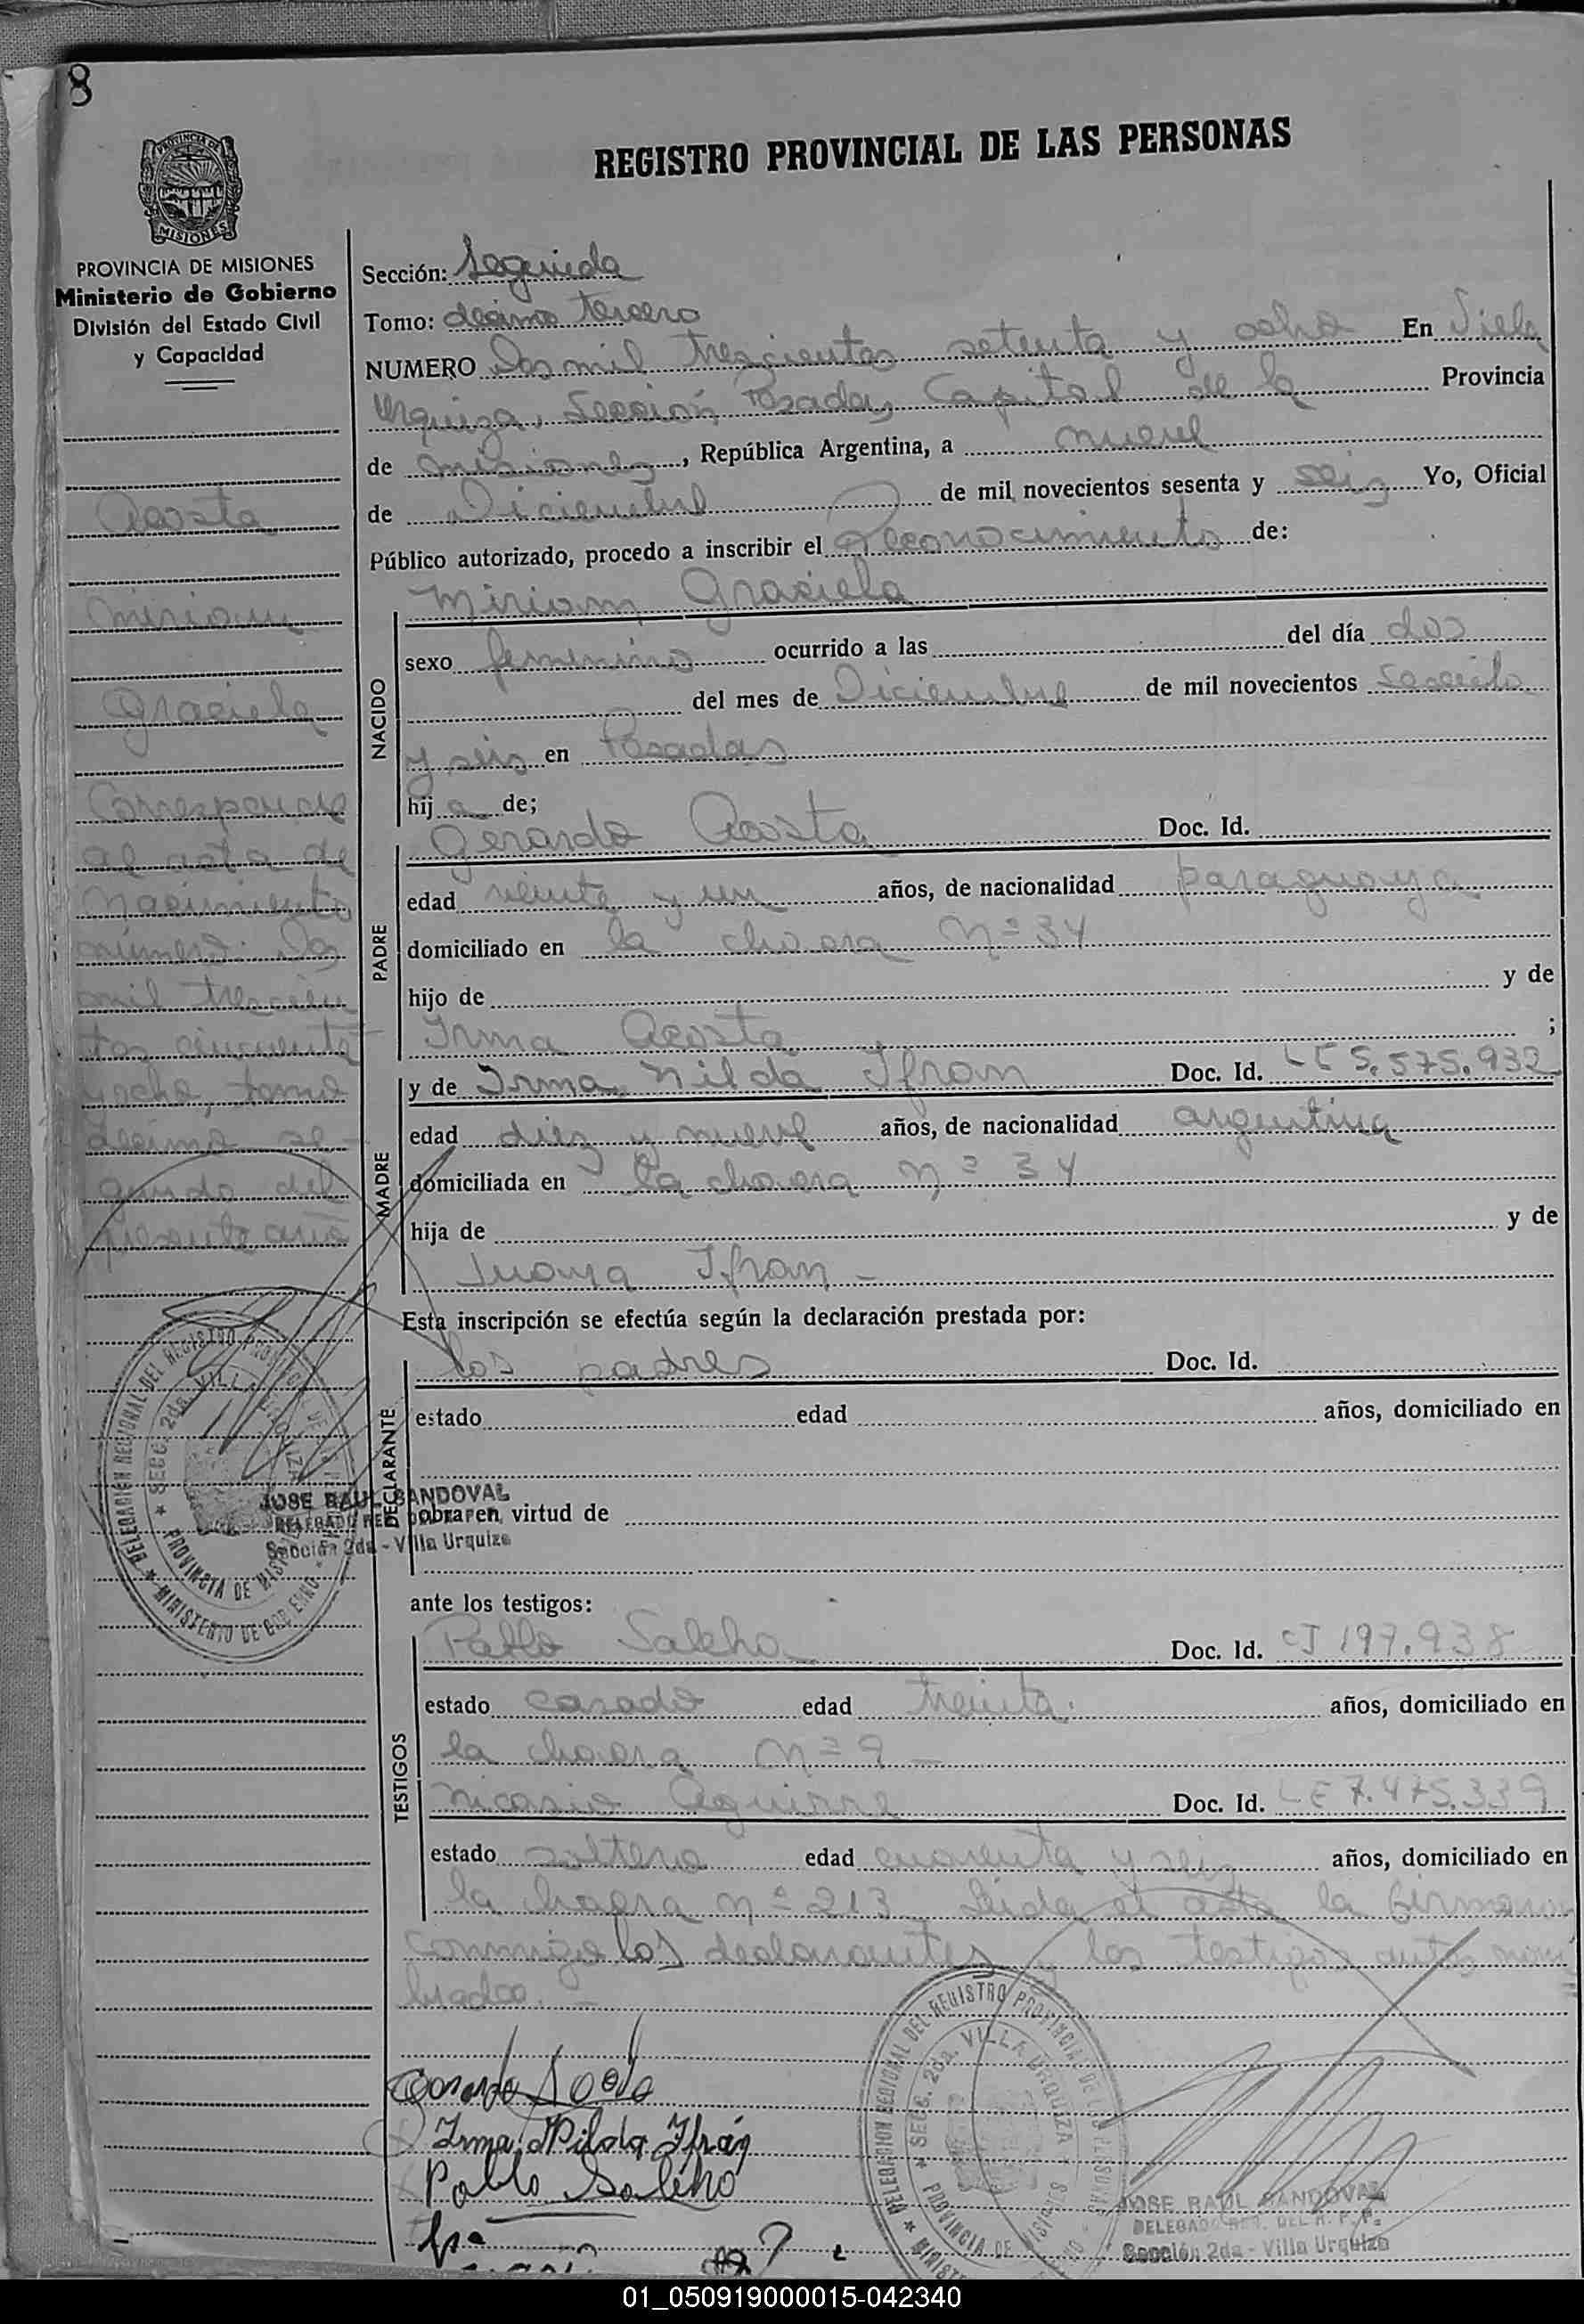 8
REGISTRO PROVINCIAL DE LAS PERSONAS
PROVINCIA DE MISIONES
MISIONES
PROVINCIA DE MISIONES
Ministerio de Gobierno
División del Estado Civil
y Capacidad
Acosta
Miriam
Graciela
Corresponde
al acta de
Nacimiento
número: Dos
mil trescien
tos cincuenta
y ocho, tomo
décimo se-
gundo del
presente año
Sección: Segunda
Tomo: décimo tercero
NUMERO Dos mil trescientos setenta y ocho En Villa
Urquiza, Sección Posadas, Capital de la Provincia
de Misiones, República Argentina, a nueve
de Diciembre de mil novecientos sesenta y seis Yo, Oficial
Público autorizado, procedo a inscribir el Reconocimiento de:
NACIDO
Miriam Graciela
sexo femenino ocurrido a las del día dos
del mes de Diciembre de mil novecientos sesenta
y seis en Posadas
hija de;
PADRE
Gerardo Acosta Doc. Id.
edad veinte y un años, de nacionalidad paraguaya
domiciliado en la chacra Nº 34
hijo de y de
Irma Acosta ;
MADRE
y de Irma Nilda Ifran Doc. Id. LC 5.575.932
edad diez y nueve años, de nacionalidad argentina
domiciliada en la chacra nº 34
hija de y de
Juana Ifran -
Esta inscripción se efectúa según la declaración prestada por:
DECLARANTE
los padres Doc. Id.
estado edad años, domiciliado en
obra en virtud de
JOSE RAUL SANDOVAL
DELEGADO REG. DEL R. P. P.
Sección 2da - Villa Urquiza
DELEGACION REGIONAL DEL REGISTRO PROVINCIAL DE LAS PERSONAS
SECC. 2da. VILLA URQUIZA
PROVINCIA DE MISIONES
MINISTERIO DE GOBIERNO
ante los testigos:
TESTIGOS
Pablo Saleho Doc. Id. CI 197.938
estado casado edad treinta años, domiciliado en
la chacra Nº 9 -
Nicasio Aguirre Doc. Id. LE 7.475.339
estado soltero edad cuarenta y seis años, domiciliado en
la chacra nº 213 Leida el acta la firmaron
conmigo los declarantes y los testigos antes nom
brados. -
Gerardo Acosta
Irma Nilda Ifrán
Pablo Saleho
DELEGACION REGIONAL DEL REGISTRO PROVINCIAL DE LAS PERSONAS
SECC. 2da. VILLA URQUIZA
PROVINCIA DE MISIONES
JOSE RAUL SANDOVAL
DELEGADO REG. DEL R. P. P.
Sección 2da - Villa Urquiza
01_050919000015-042340